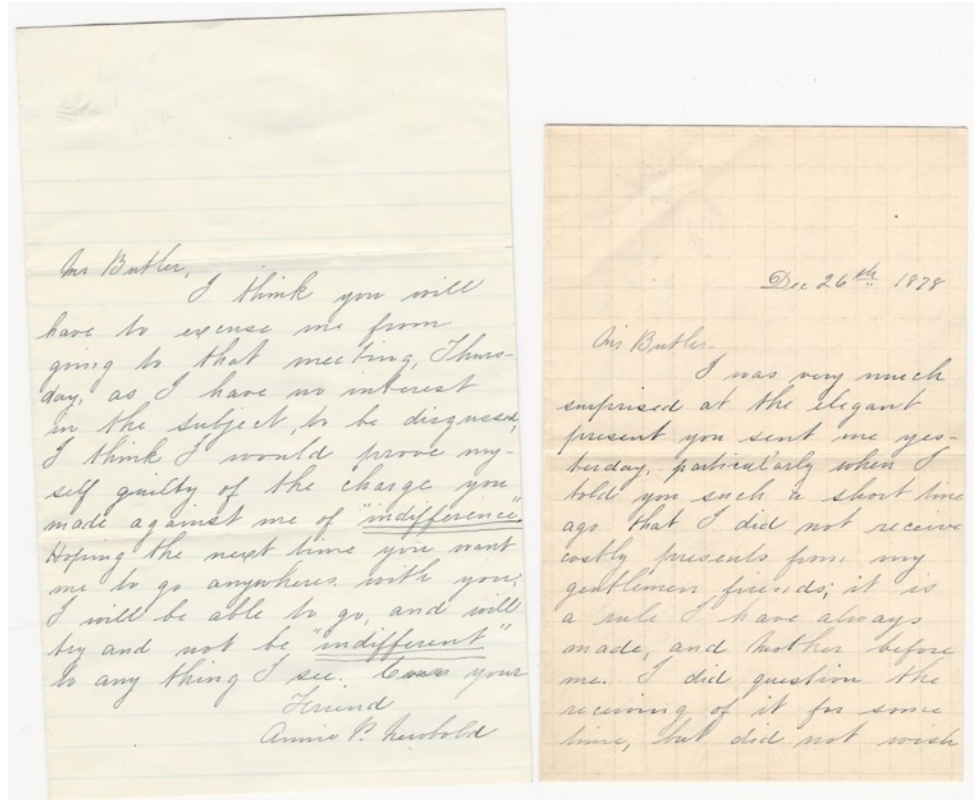 Mr Butler,
I think you will
have to excuse me from
going to that meeting, Thurs-
day, as I have no interest
in the subject, to be disgussed,
I think I would prove my-
self guilty of the charge you
made against me of "indifference".
Hoping the next time you want
me to go anywheres with you,
I will be able to go, and will
try and not be "indifferent"
to any thing I see. your
Friend
Annie P. Newbold
Dec 26th 1878
Mr Butler.
I was very much
surprised at the elegant
present you sent me yes-
terday, particularly when I
told you such a short time
ago that I did not receive
costly presents from my
gentlemen friends; it is
a rule I have always
made, and Mother before
me. I did question the
receiving of it for some
time, but did not wish